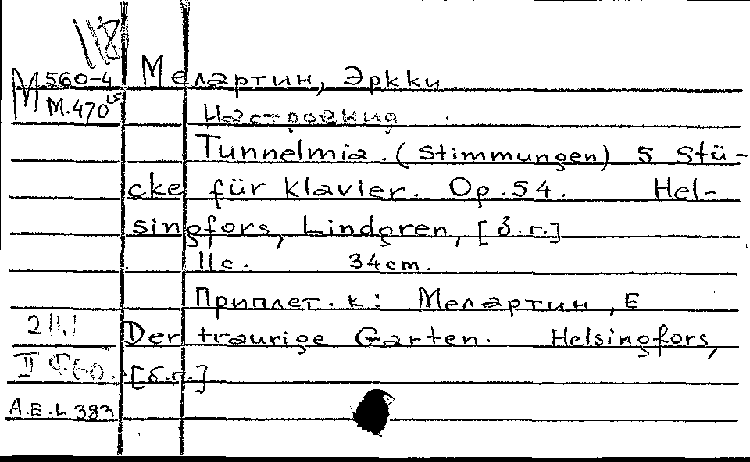 118
М 560-4 Мелартин, Эркки
М.470
Настроения
Tunnelmia. (Stimmungen) 5 Stü-
cke für Klavier. Op.54. Hel-
singfors, Lindgren, [б.г.]
11с. 34cm.
Приплет. к: Мелартин, Е
Der traurige Garten. Helsingfors,
[б.г.]
A.E.L 383